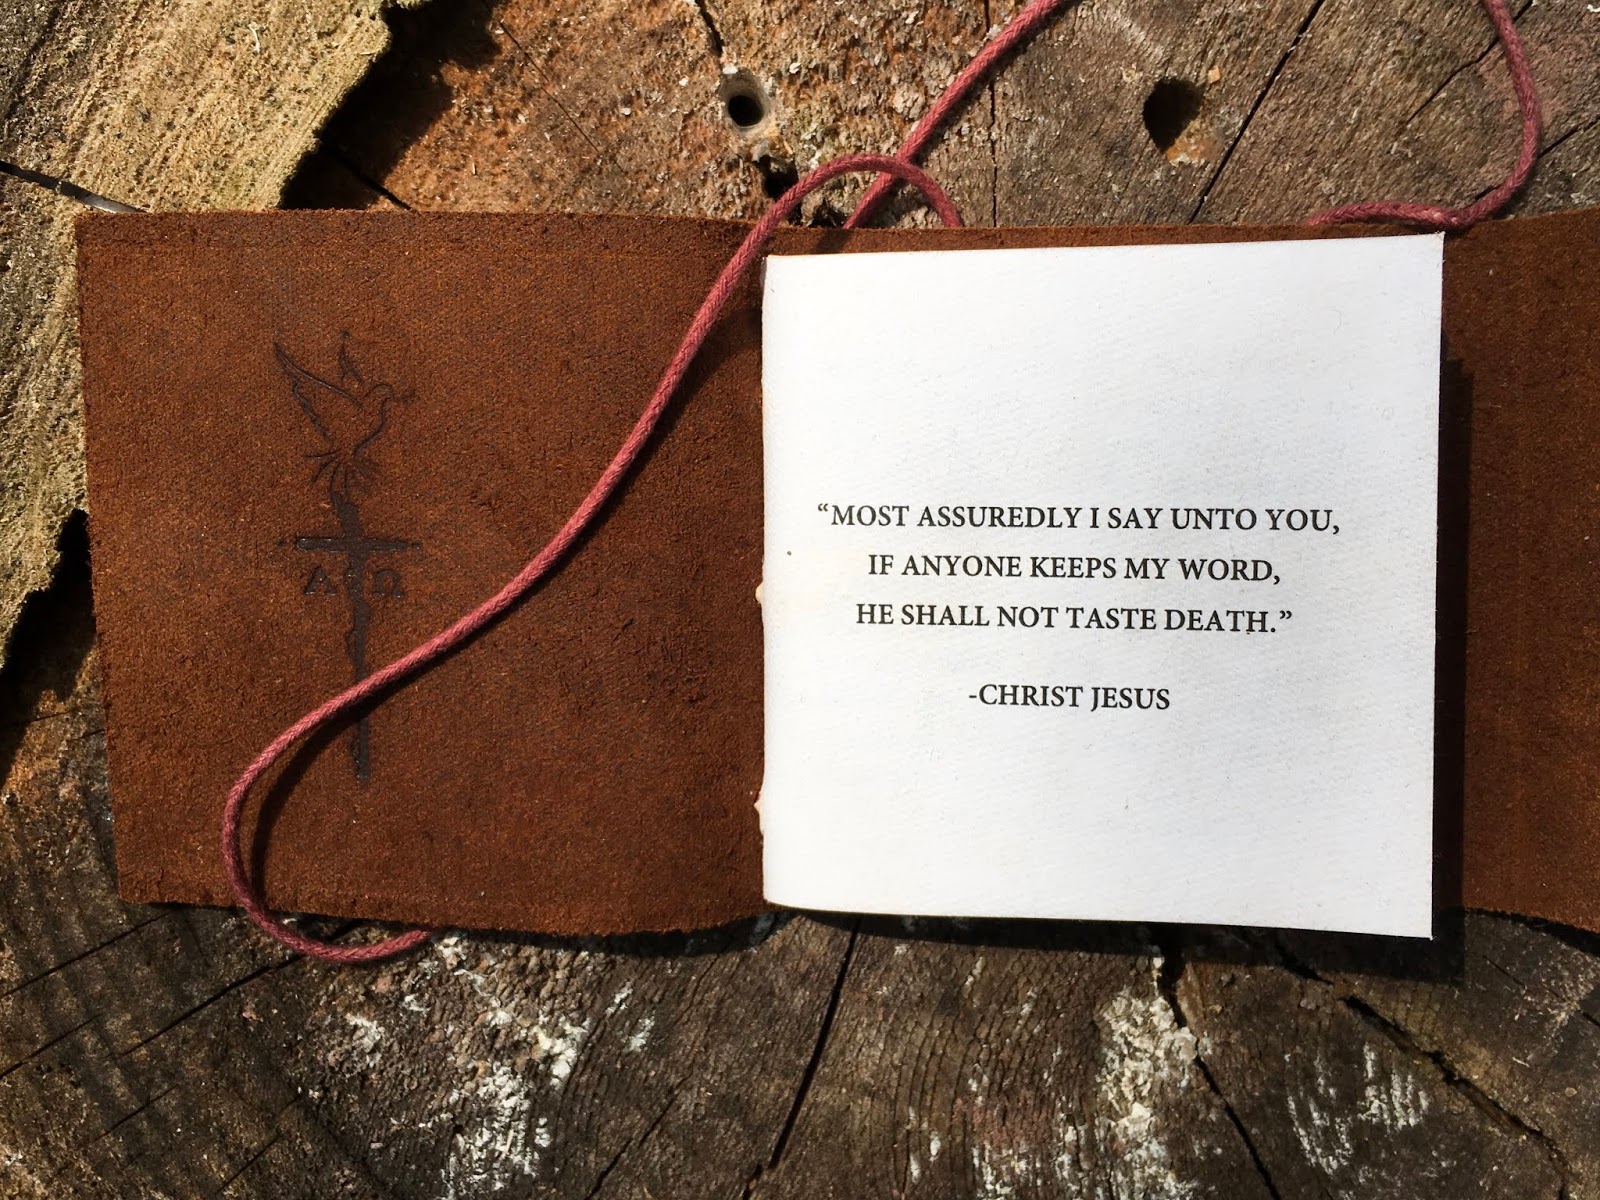 Α Ω
“MOST ASSUREDLY I SAY UNTO YOU,
IF ANYONE KEEPS MY WORD,
HE SHALL NOT TASTE DEATH.”
-CHRIST JESUS